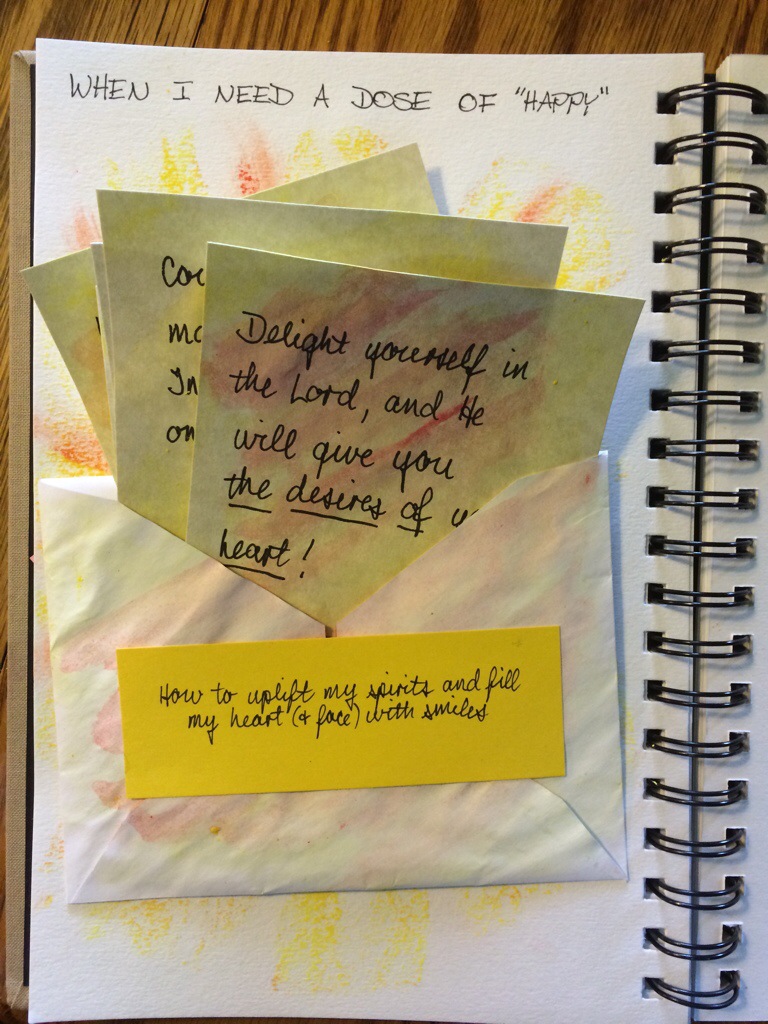 WHEN I NEED A DOSE OF "HAPPY"
Delight yourself in
the Lord, and He
will give you
the desires of
heart!
How to uplift my spirits and fill
my heart (& face) with smiles